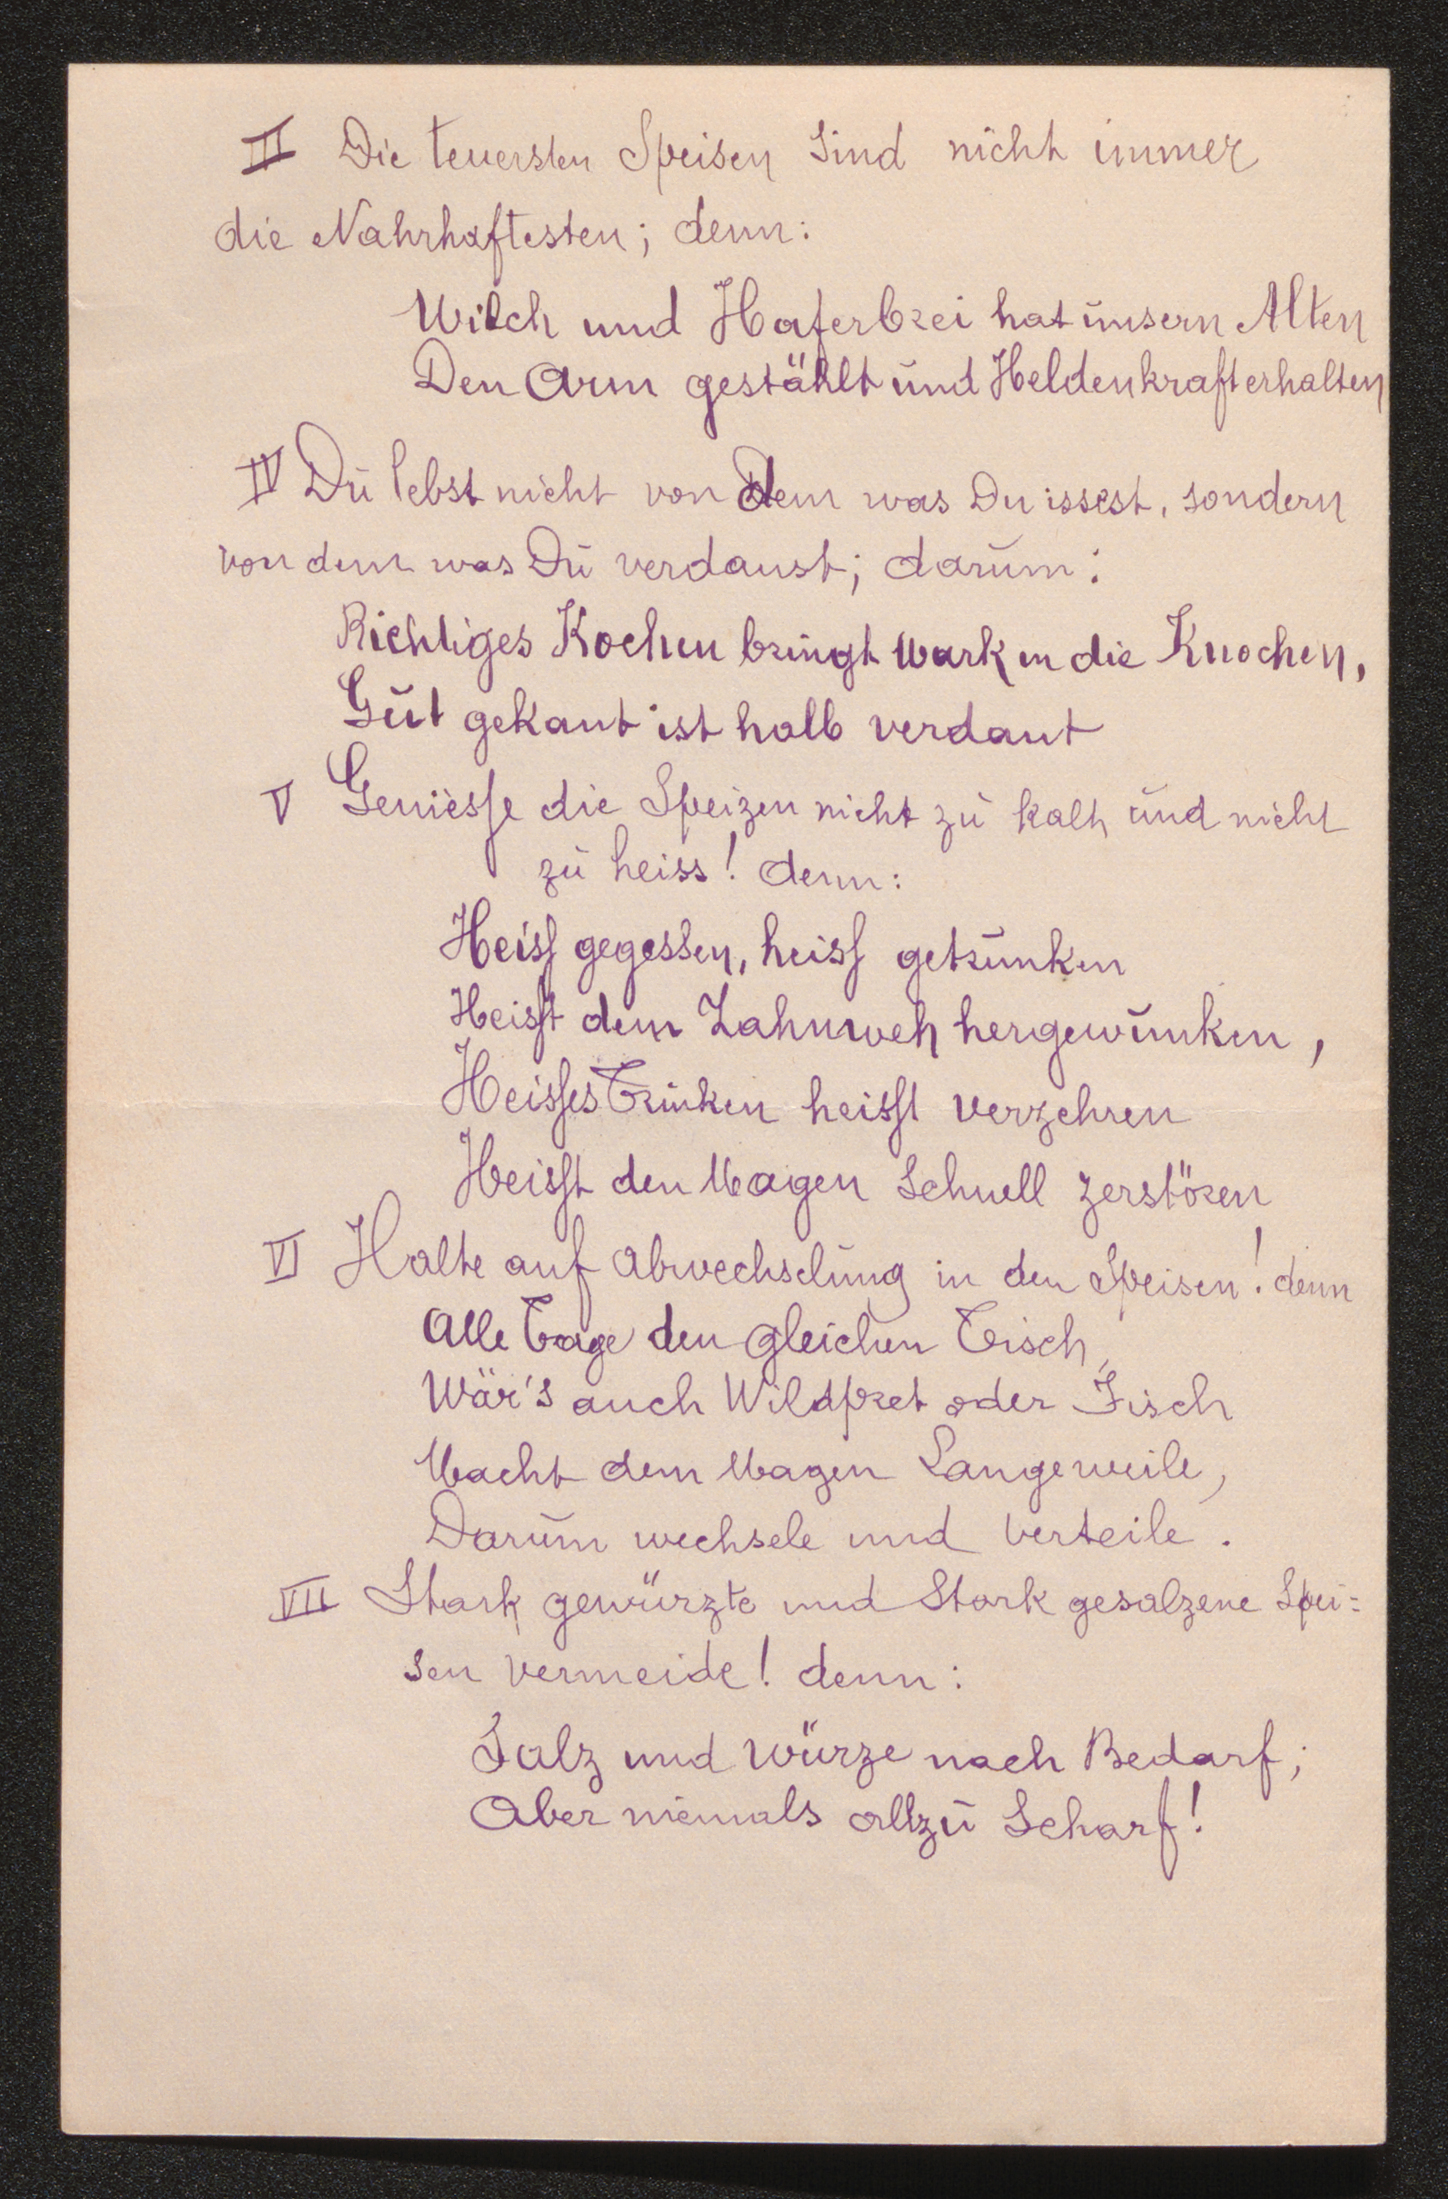 III Die teuersten Speisen sind nicht immer
die Nahrhaftesten; denn:
Milch und Haferbrei hat unsern Alten
Den Arm gestählt und Heldenkraft erhalten
IV Du lebst nicht von dem was Du issest, sondern
von dem was Du verdaust; darum:
Richtiges Kochen bringt Mark in die Knochen,
Gut gekaut ist halb verdaut
V Geniesse die Speizen nicht zu kalt, und nicht
zu heiss! denn:
Heiss gegessen, heiss getrunken
Heisst dem Zahnweh hergewunken,
Heisses Trinken heisst verzehren
Heisst den Magen schnell zerstören
VI Halte auf Abwechselung in den Speisen! denn
Alle Tage den gleichen Tisch,
Wär's auch Wildpret oder Fisch
Macht dem Magen Langeweile,
Darum wechsele und verteile.
VII Stark gewürzte und Stark gesalzene Spei=
sen vermeide! denn:
Salz und Würze nach Bedarf;
Aber niemals allzu Scharf!